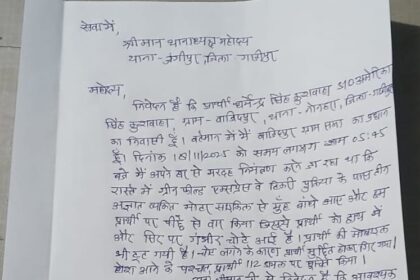 सेवा में,
श्रीमान थानाध्यक्ष महोदय
थाना - जंगीपुर, जिला - गाजीपुर
महोदय,
निवेदन है कि प्रार्थी धर्मेन्द्र सिंह कुशवाहा S/O अमेरिका
सिंह कुशवाहा, ग्राम - बाबियपुर, थाना - नोनहरा, जिला - गाजीपुर
का निवासी हूँ। वर्तमान में मैं ग्राम सभा का प्रधान
हूँ। दिनांक 18/11/2025 को समय लगभग शाम 05:45
बजे मैं अपने घर से मरदह निमंत्रण करने जा रहा था कि
रास्ते में ग्रीन फील्ड एक्सप्रेस वे डिहरी पुलिया के पास तीन
अज्ञात व्यक्ति मोटर साइकिल से मुँह बांधे आए और हम
प्रार्थी पर पीछे से वार किया जिससे प्रार्थी को हाथ में
और सिर पर गंभीर चोटे आई है। प्रार्थी की मोबाइल
भी टूट गयी है। चोट लगने के कारण प्रार्थी मूर्छित होकर गिर गया।
होश आने के पश्चात प्रार्थी 112 काल पर सूचित किया।
से निवेदन है कि आवश्यक